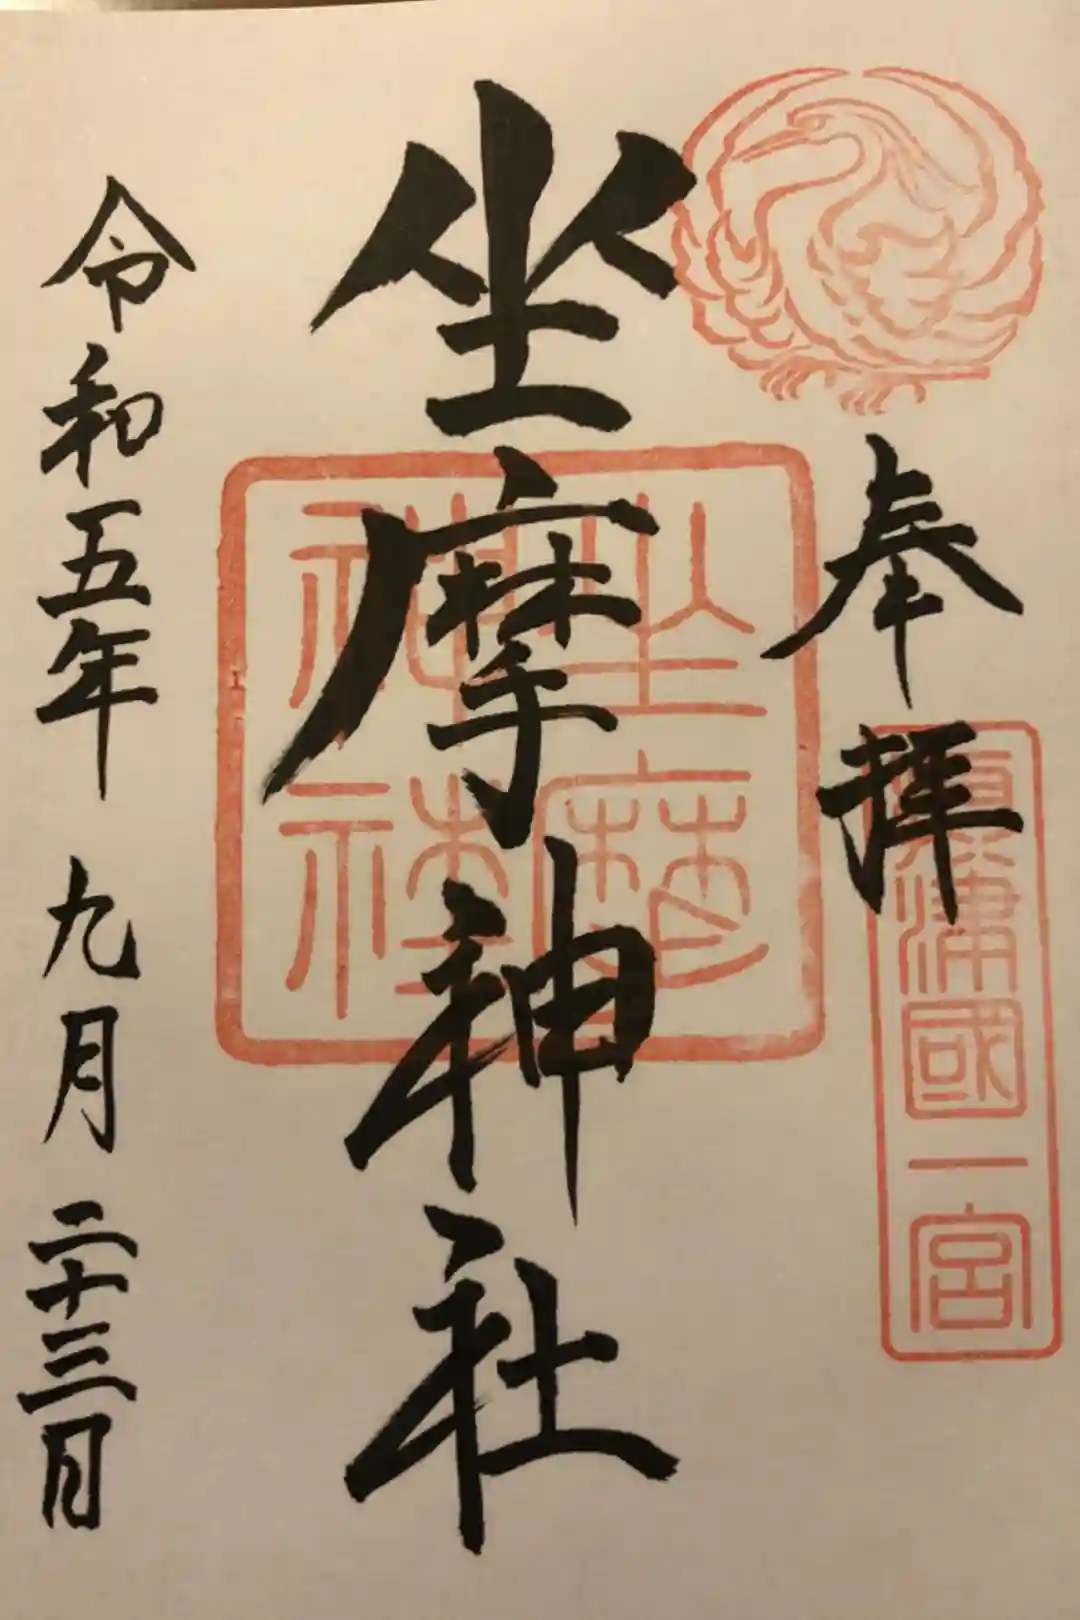 奉拝
摂津國一宮
坐摩神社
坐摩神社
令和五年 九月 二十三日